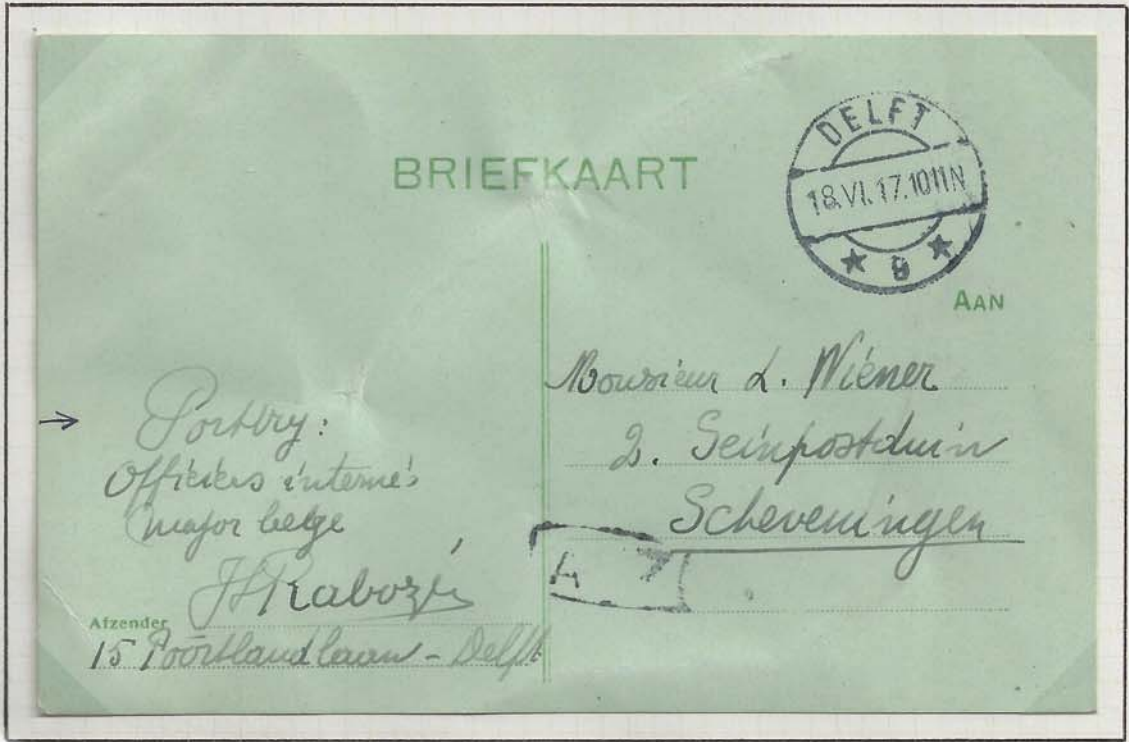 BRIEFKAART
DELFT
18.VI.17.10 11N
AAN
Monsieur L. Wiener
2. Seinpostduin
Scheveningen
Portvry:
Officiers internés
major belge
Rabozée
Afzender
15 Poortlandlaan - Delft